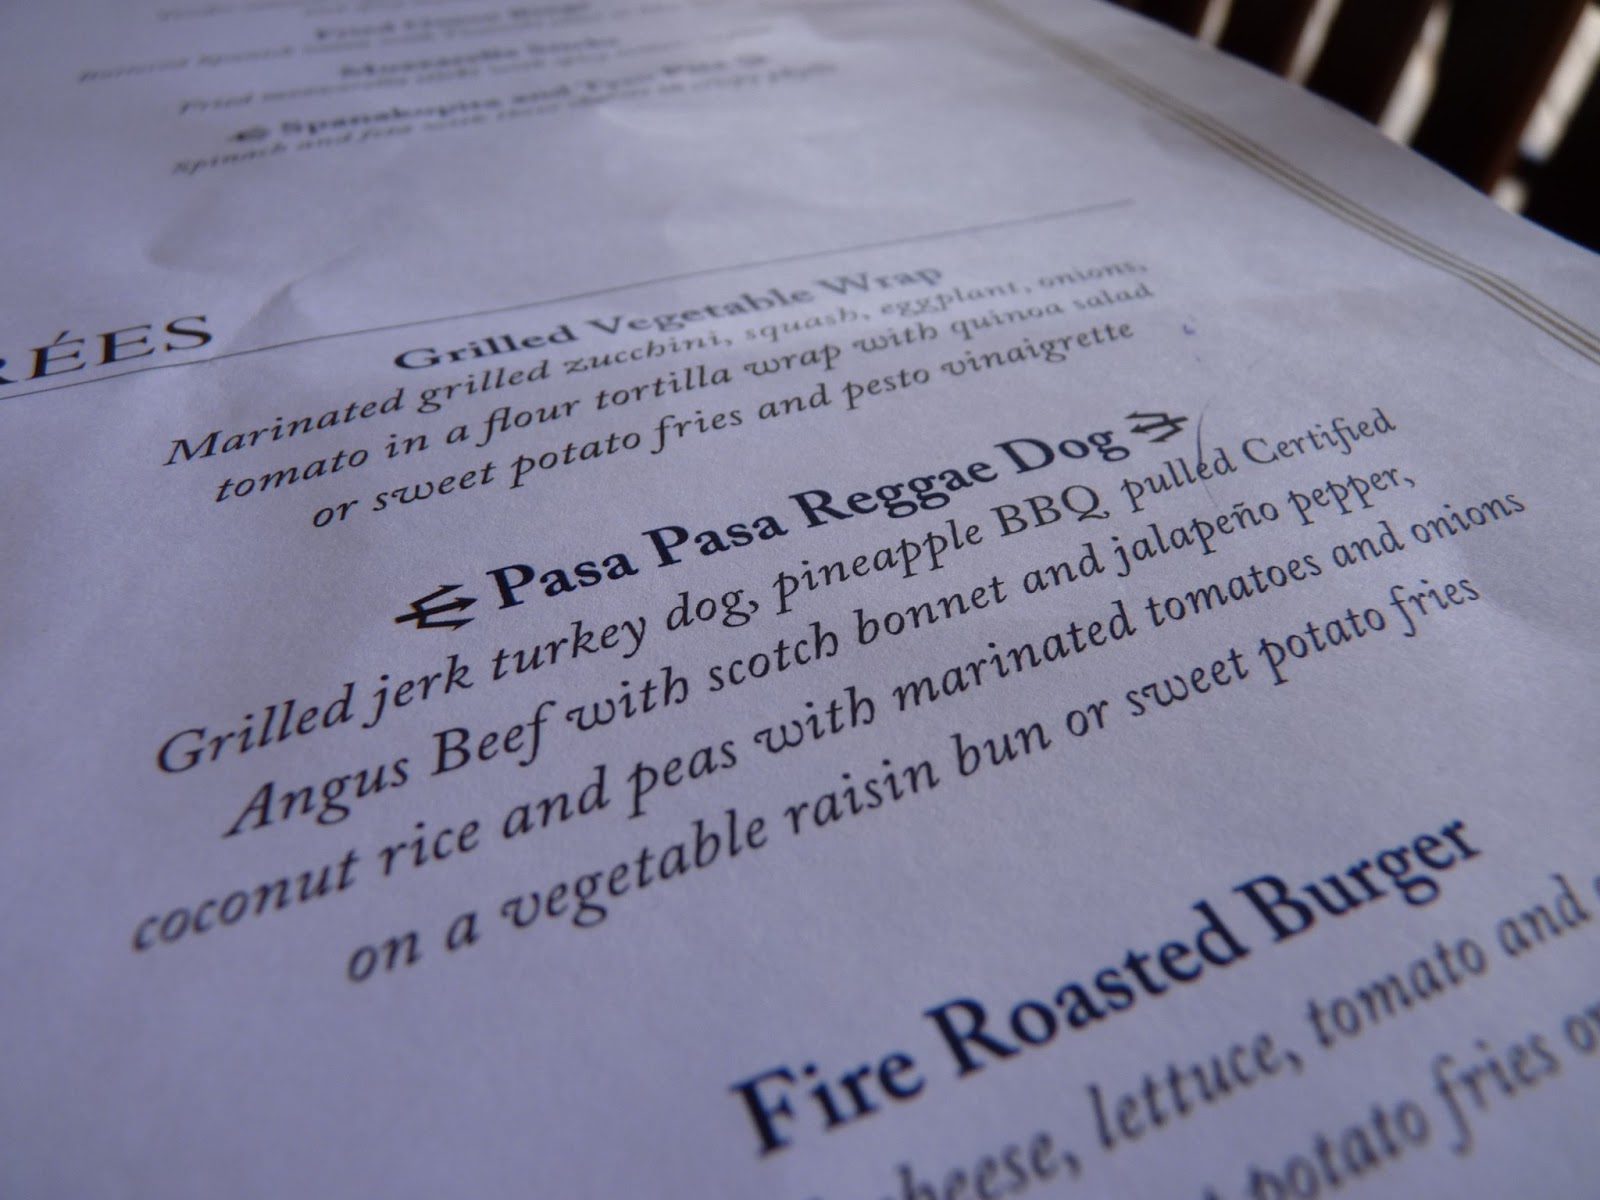 Fried
Mozzarella Sticks
Fried mozzarella sticks with
Spanakopita and
Spinach and feta with three cheese in crispy phyllo
RÉES
Grilled Vegetable Wrap
Marinated grilled zucchini, squash, eggplant, onions,
tomato in a flour tortilla wrap with quinoa salad
or sweet potato fries and pesto vinaigrette
Pasa Pasa Reggae Dog
Grilled jerk turkey dog, pineapple BBQ pulled Certified
Angus Beef with scotch bonnet and jalapeño pepper,
coconut rice and peas with marinated tomatoes and onions
on a vegetable raisin bun or sweet potato fries
Fire Roasted Burger
cheese, lettuce, tomato and
potato fries or